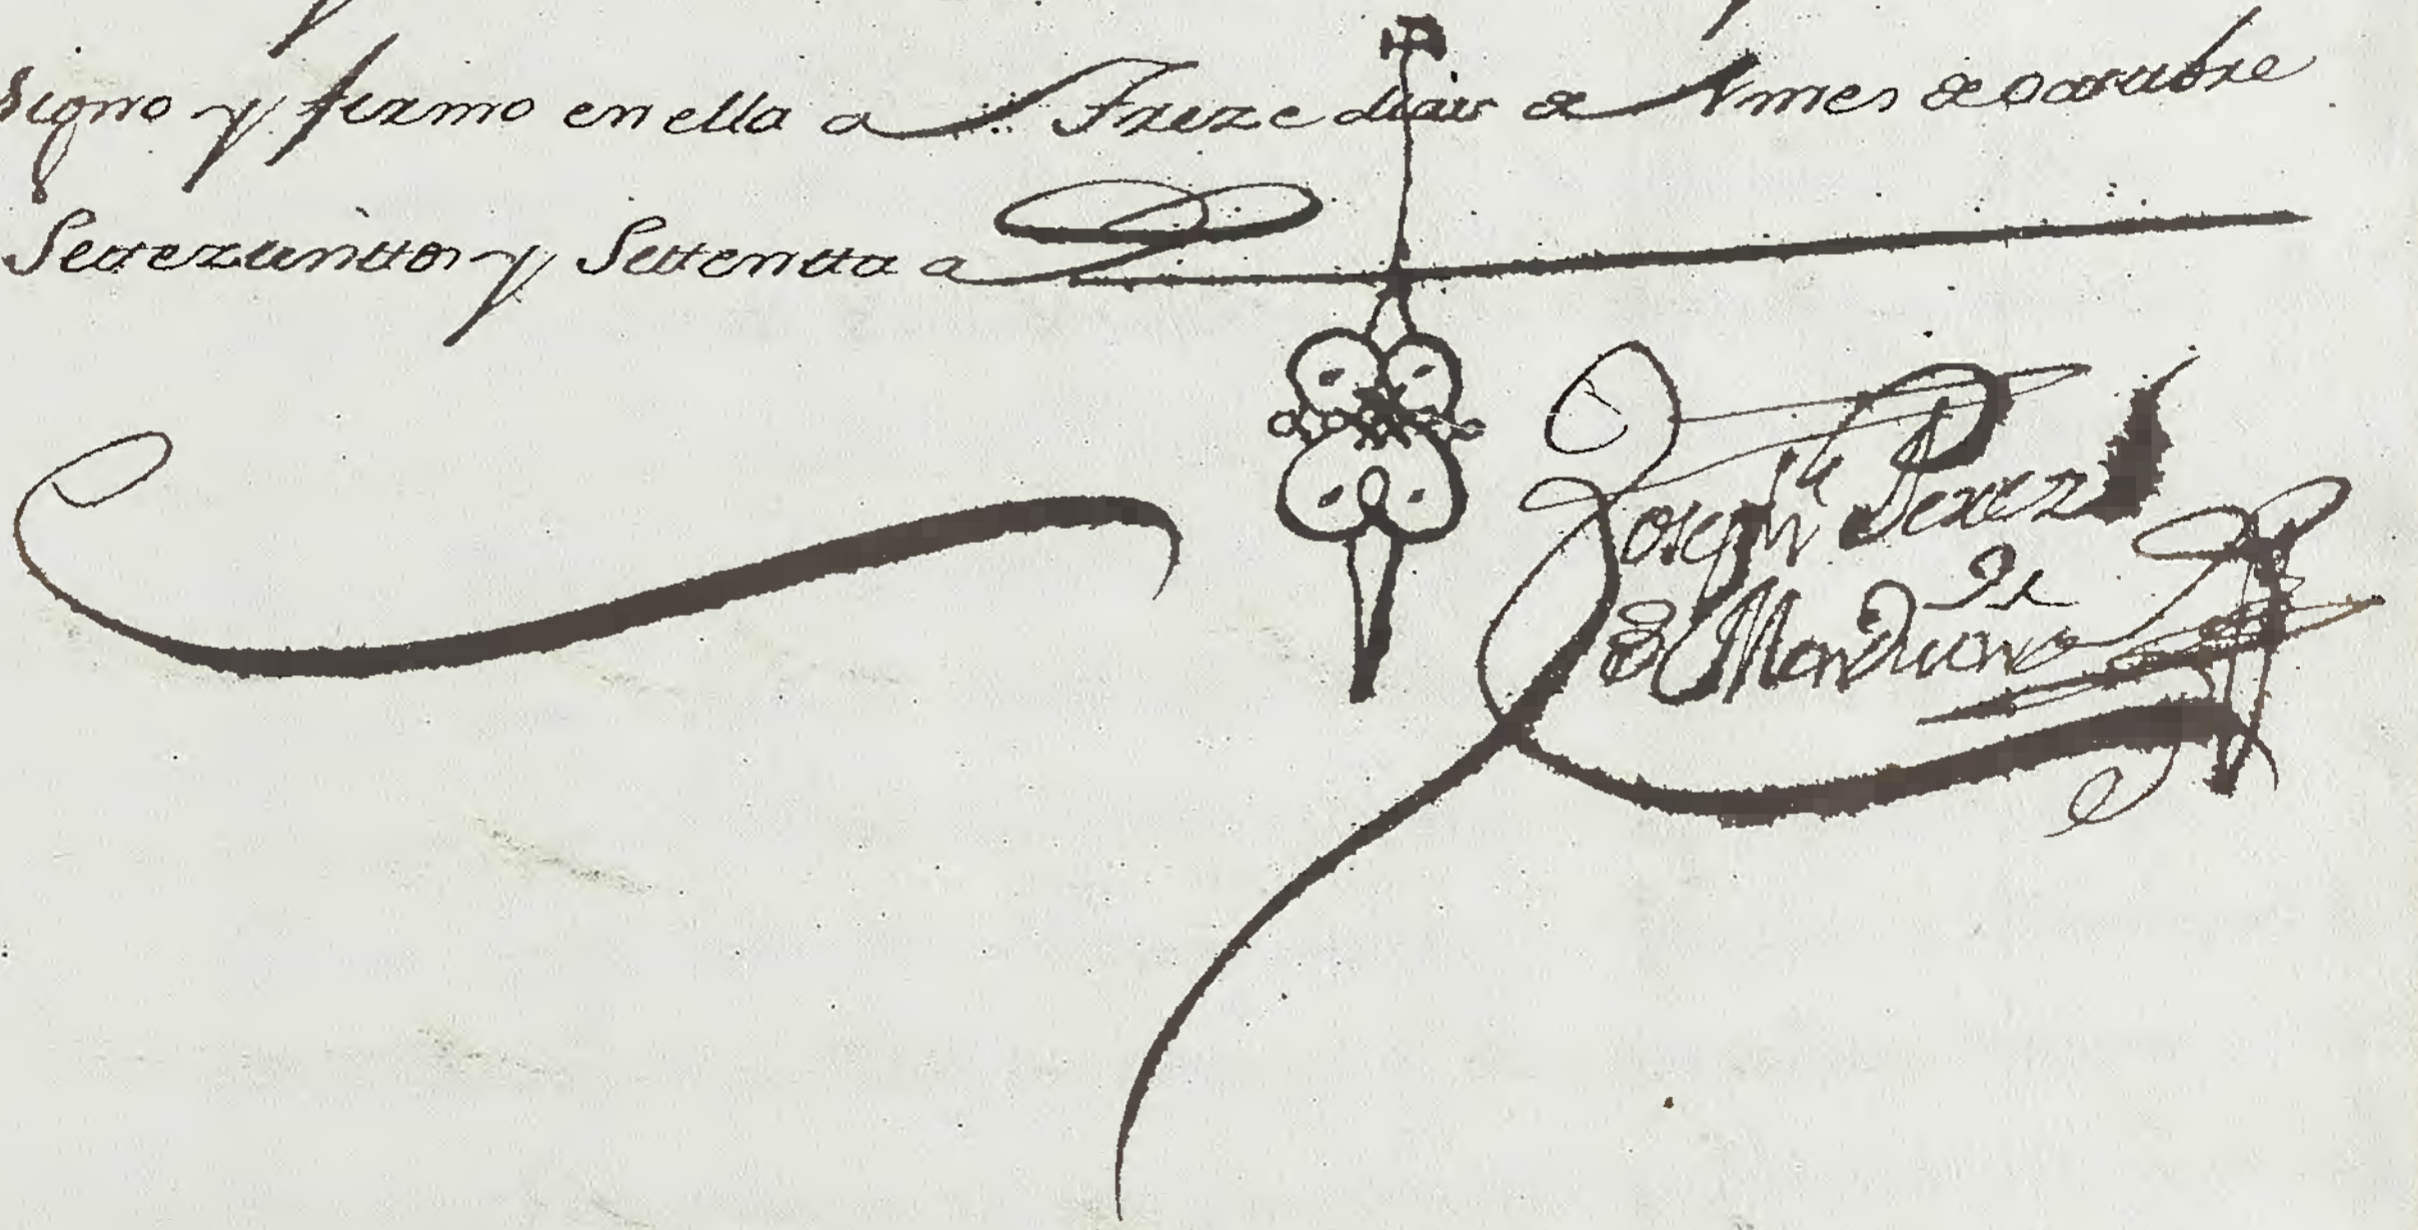 signo y firmo en ella a Treze dias de el mes de Octubre
Settezientos y Settenta a
Joseph Perez
de Mandiano